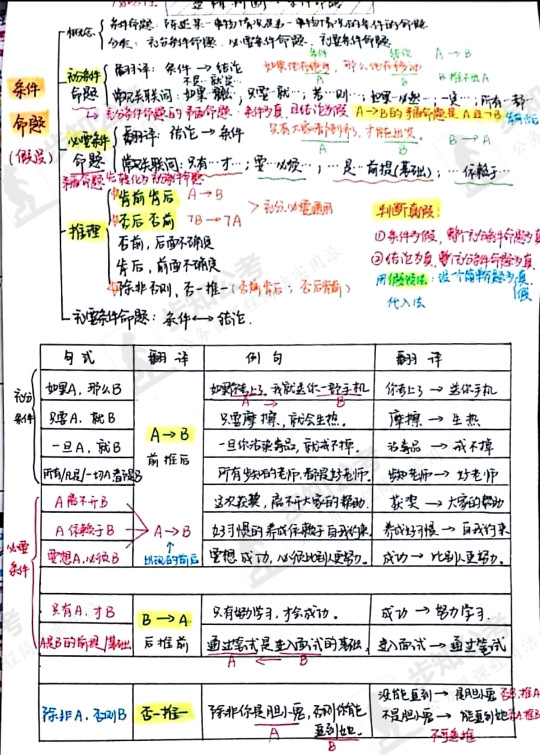 概念
条件命题:陈述某一事物情况是另一事物情况的条件的命题
分类:充分条件命题、必要条件命题、充要条件命题
条件命题(假言)
充分条件命题
翻译:条件→结论
不是…就是…
条件 结论 A→B
如果他在跑步,那么他在移动
A B B推不出A
常见关联词:如果…就…;只要…就…;若…则…;如果…必然…;一旦…;所有…都…
充分条件命题的矛盾命题:条件为真,且结论为假
A→B的矛盾命题是A且¬B
必要条件命题
翻译:结论→条件
B→A
常见关联词:只有…才…;要…必须…;…是…前提(基础);…依赖于…
矛盾命题先转化为充分条件命题
推理
肯前肯后 A→B
否后否前 ¬B→¬A
充分、必要通用
否前,后面不确定
肯后,前面不确定
除非否则,否一推一(否前肯后;否后肯前)
判断真假:
①条件为假,整个充分条件命题为真
②结论为真,整个充分条件命题为真
用假设法:设一个简单命题为真/假
代入法
充要条件命题:条件←→结论
句式 翻译 例句 翻译
充分条件
如果A,那么B 如果你考上了,我就送你一部手机 你考上了→送你手机
A B
只要A,就B 只要摩擦,就会生热。 摩擦→生热
A→B
前推后
一旦A,就B 一旦你沾染毒品,就戒不掉。 沾毒品→戒不掉
所有/凡是/一切A都是B 所有步知的老师,都是好老师。 步知老师→好老师
必要条件
A离不开B 这次获奖,离不开大家的帮助。 获奖→大家的帮助
A依赖于B A→B 好习惯的养成依赖于自我约束。 养成好习惯→自我约束
要想A,必须B 要想成功,必须比别人更努力。 成功→比别人更努力。
只有A,才B B→A 只有努力学习,才会成功。 成功→努力学习.
A是B的前提/基础 后推前 通过笔试是进入面试的基础。 进入面试→通过笔试
A ← B
除非A,否则B 否一推一 除非你是胆小鬼,否则你能追到她。 没能追到→是胆小鬼 否B,推A
不是胆小鬼→能追到她 否A推B
A B 不可连推